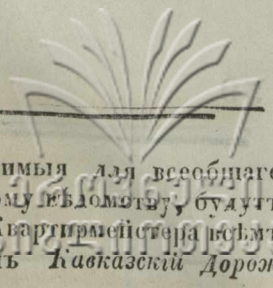 димыя для всеобщаго
ому вѣдомству, будутъ
Квартирмейстера всѣмъ
ъ Кавказскій Дорож